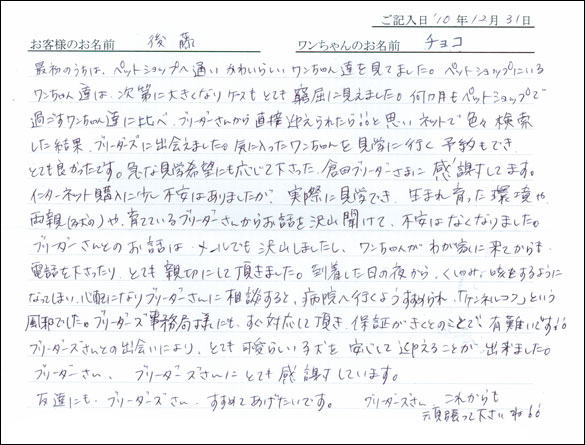 ご記入日 '10 年 12 月 31 日
お客様のお名前 後藤 ワンちゃんのお名前 チョコ
最初のうちは、ペットショップへ通い かわいらしい ワンちゃん達を見てました。ペットショップにいる
ワンちゃん達は、次第に大きくなり ケースも とても 窮屈に見えました。何ヶ月もペットショップで
過ごすワンちゃん達に比べ、ブリーダーさんから直接迎えられたら!!と思い ネットで色々検索
した結果、ブリーダーズに出会えました。気に入ったワンちゃんを見学に行く 予約もでき、
とても良かったです。急な見学希望にも応じて下さった、倉田ブリーダーさまに 感謝してます。
インターネット購入に少し不安はありましたが、実際に見学でき、生まれ育った環境や、
両親(お犬の)や、育てているブリーダーさんからお話を沢山聞けて、不安はなくなりました。
ブリーダーさんとのお話は、メールでも沢山しましたし、ワンちゃんがわが家に来てからも、
電話を下さったり、とても 親切にして頂きました。到着した日の夜から、くしゃみ、咳をするように
なってしまい、心配になりブリーダーさんに相談すると、病院へ行くようすすめられ、「ケンネルコフ」という
風邪でした。ブリーダーズ事務局様にも、すぐ対応して頂き、保証がきくとのことで、有難いです!!
ブリーダーズさんとの出会いにより、とても可愛らしい子犬を 安心して迎えることが 出来ました。
ブリーダーさん、ブリーダーズさんにとても感謝しています。
友達にも、ブリーダーズさん、すすめてあげたいです。 ブリーダーズさん これからも
頑張って下さいね!!